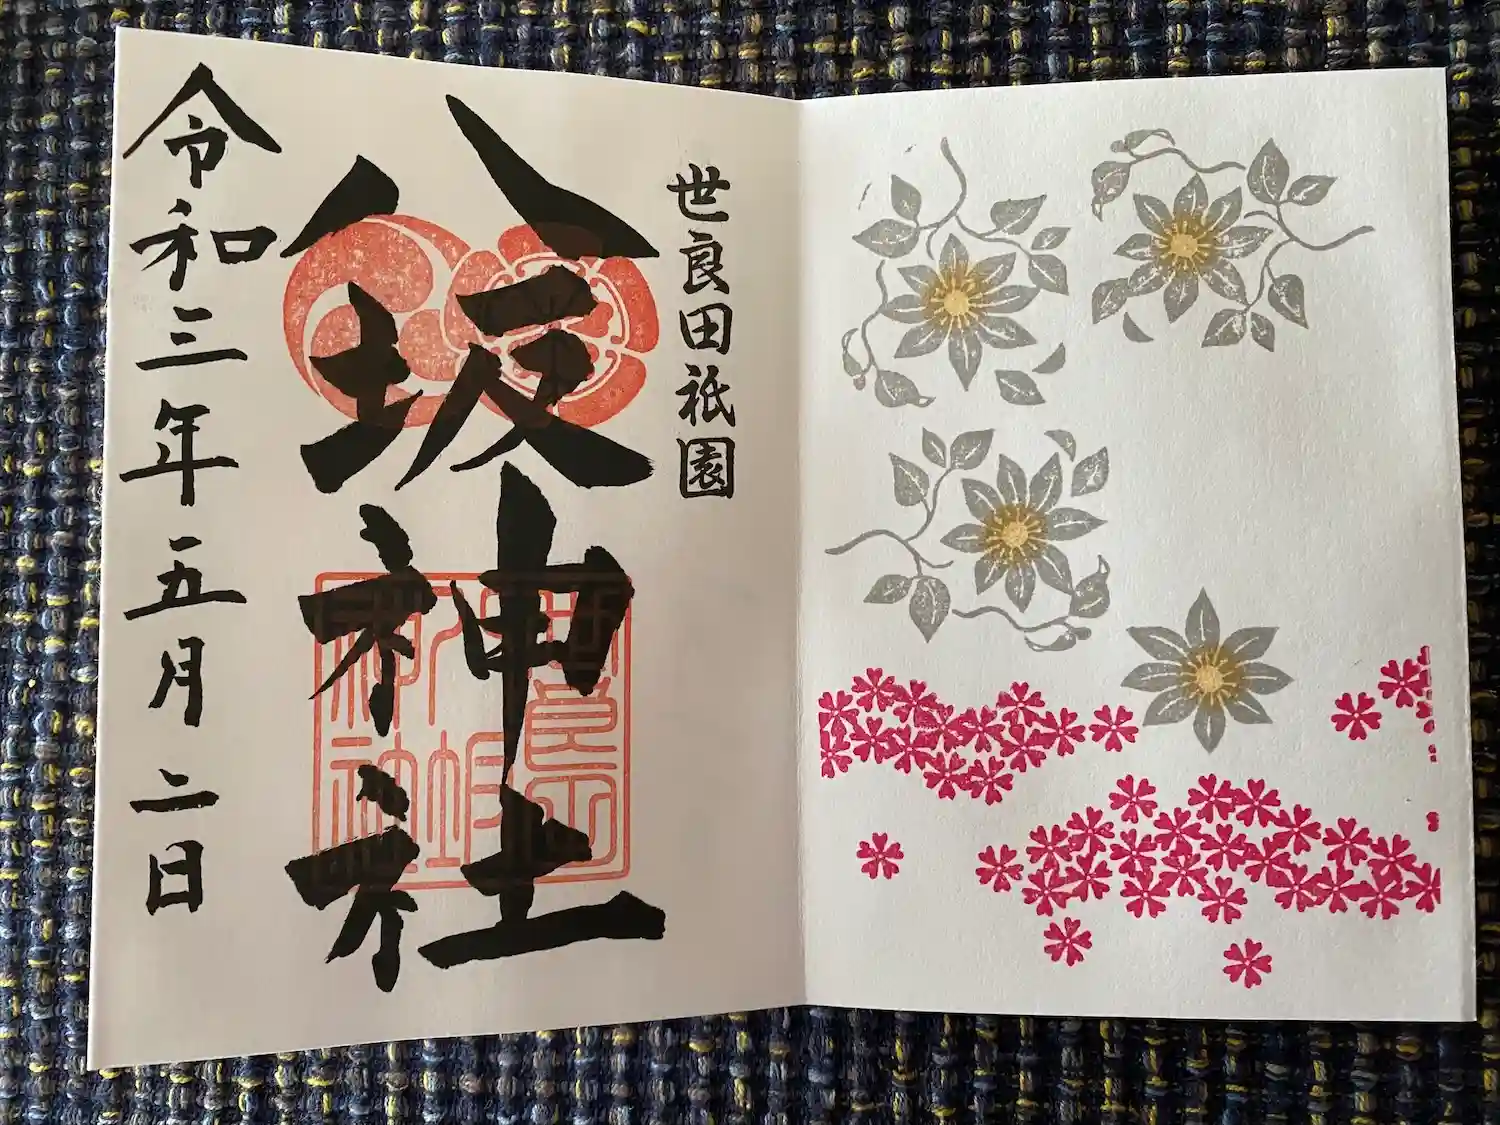 世良田祇園
八坂神社
令和三年五月二日